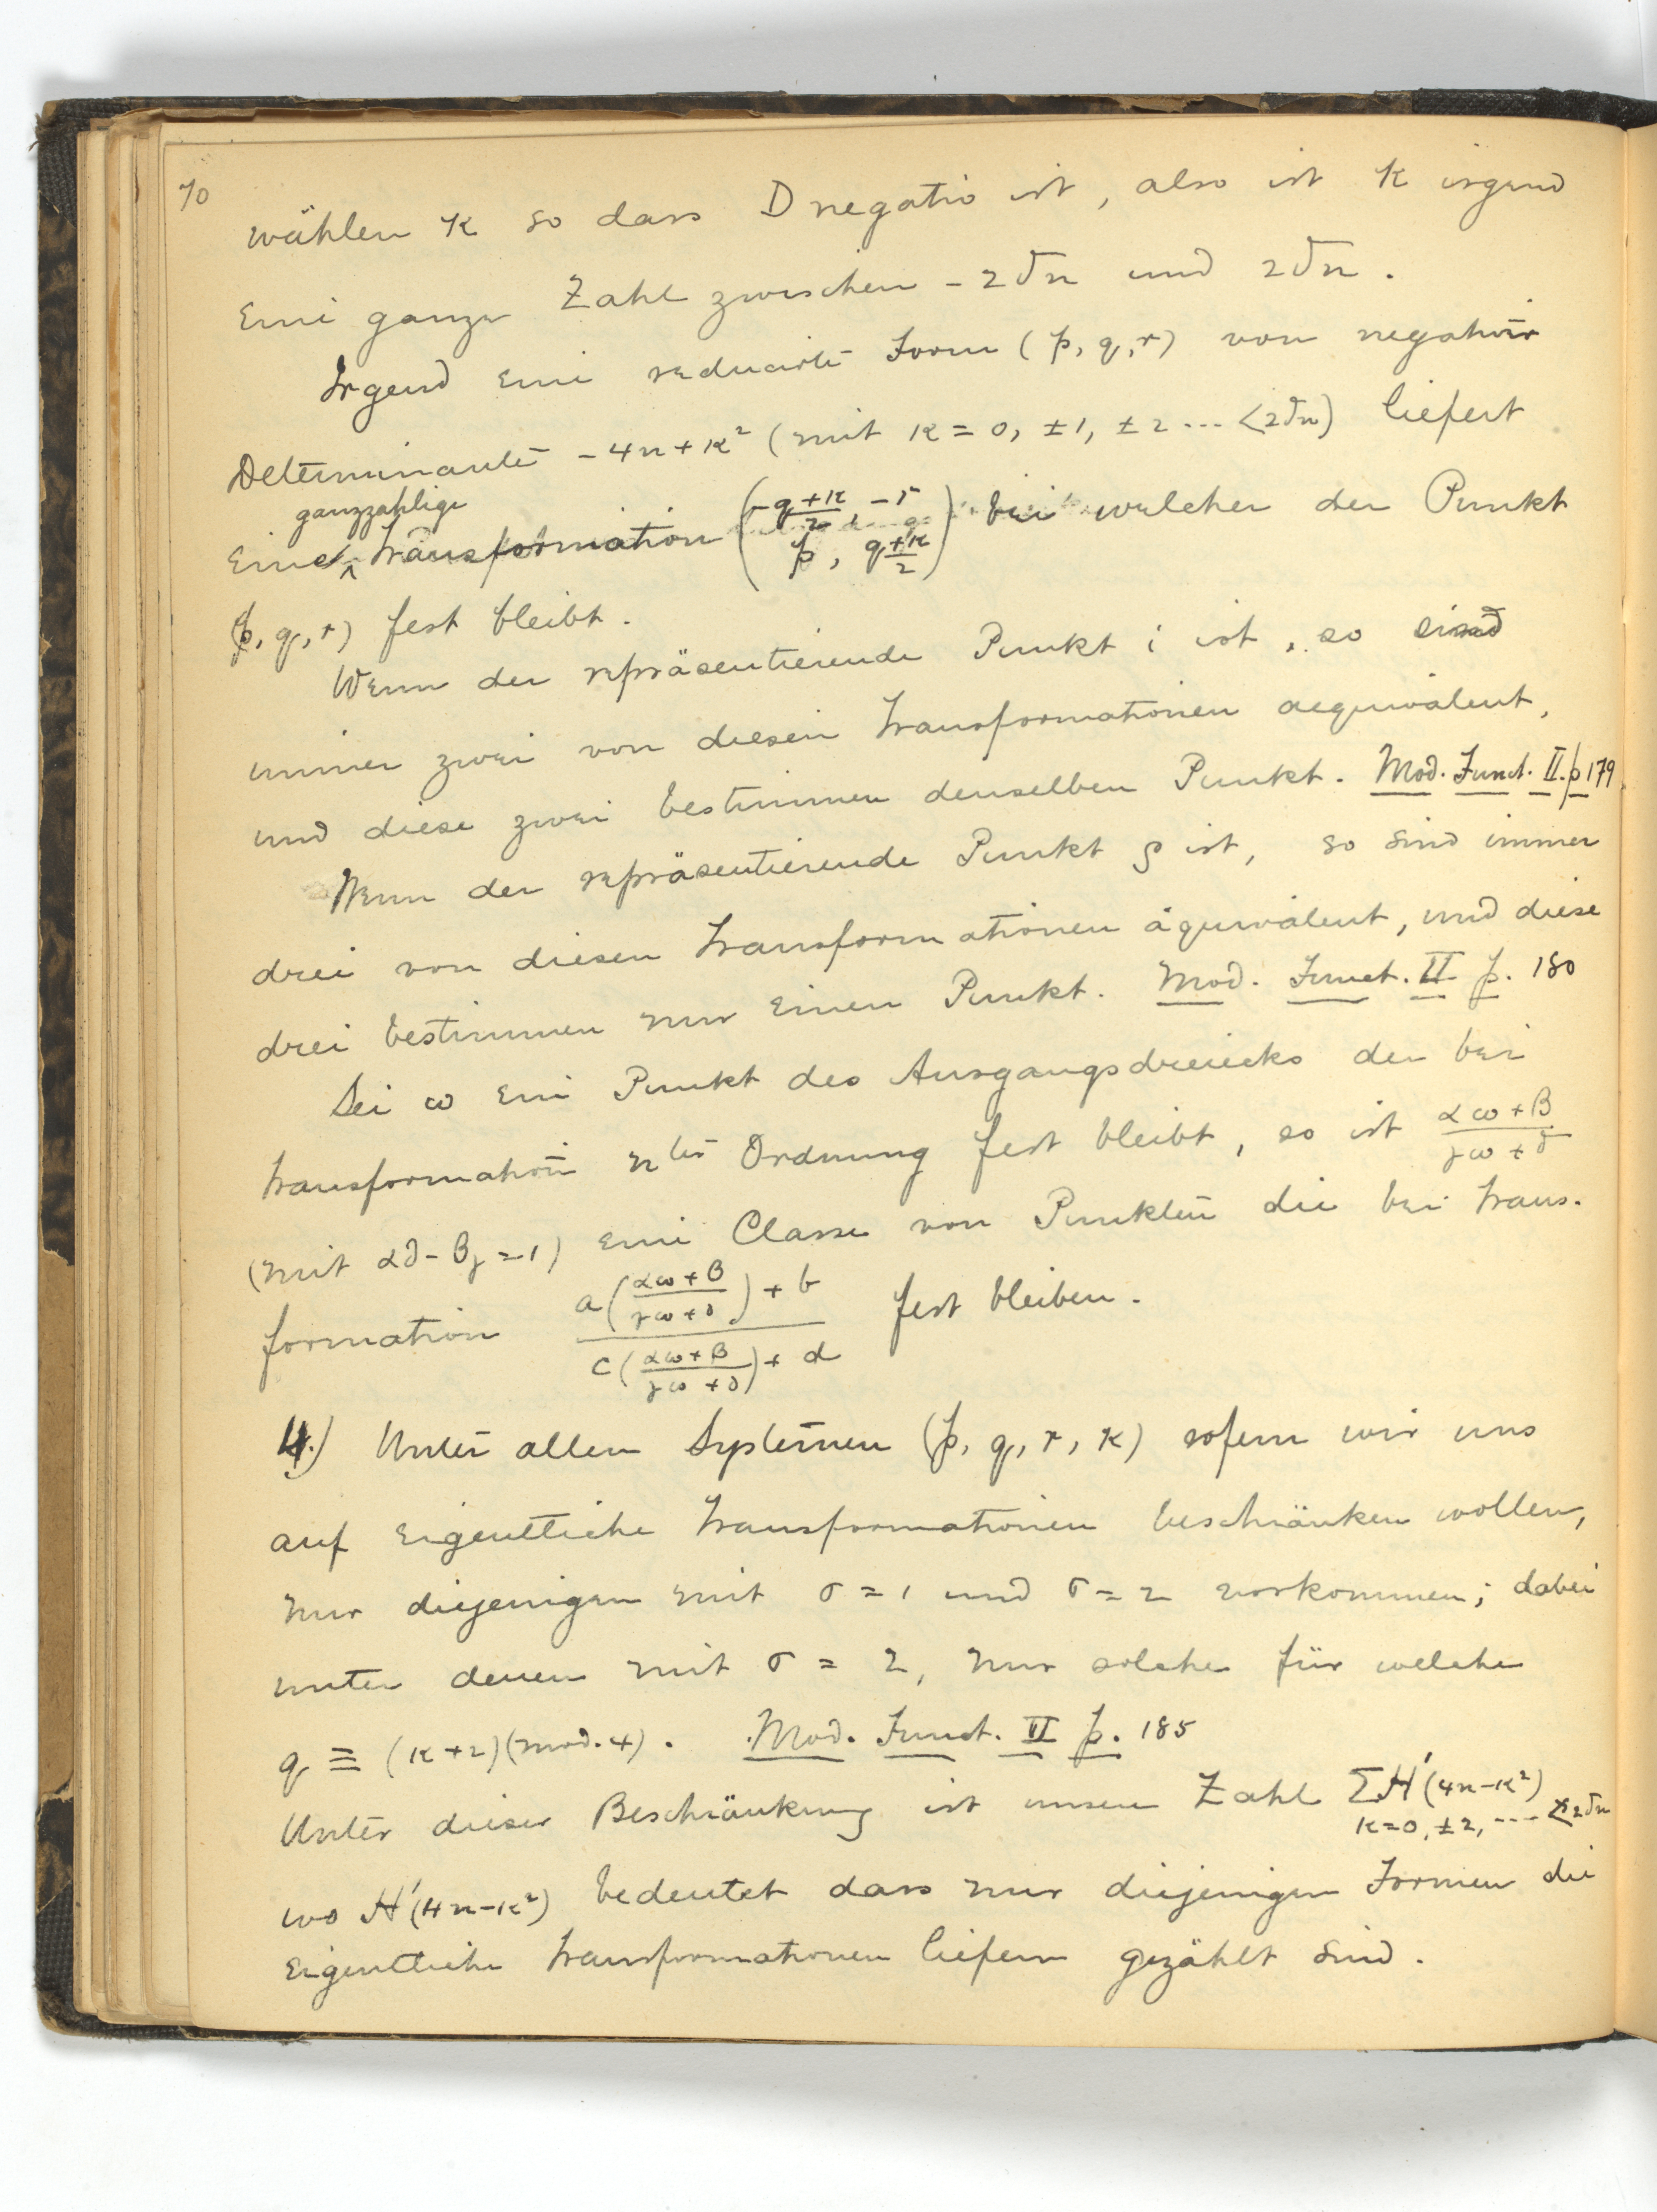 70
wählen κ so dass D negativ ist, also ist κ irgend
eine ganze Zahl zwischen -2√n und 2√n.
Irgend eine reducirte Form (p, q, r) von negativer
Determinante -4n+κ² (mit κ = 0, ±1, ±2 ... <2√n) liefert
ganzzahlige
eine Transformation ( (-q+κ)/2, -r ; p, (q+κ)/2 ) bei welcher der Punkt
(p, q, r) fest bleibt.
Wenn der repräsentierende Punkt i ist, so sind
immer zwei von diesen Transformationen aequivalent,
und diese zwei bestimmen denselben Punkt. Mod. Funct. II. p 179
Wenn der repräsentierende Punkt ρ ist, so sind immer
drei von diesen Transformationen äquivalent, und diese
drei bestimmen nur einen Punkt. Mod. Funct. II p. 180
Sei ω ein Punkt des Ausgangsdreiecks der bei
Transformation nter Ordnung fest bleibt, so ist (αω+β)/(γω+δ)
(mit αδ-βγ=1) eine Classe von Punkten die bei Trans-
formation (a((αω+β)/(γω+δ))+b)/(c((αω+β)/(γω+δ))+d) fest bleiben.
4.) Unter allen Systemen (p, q, r, κ) sofern wir uns
auf eigentliche Transformationen beschränken wollen,
nur diejenigen mit σ = 1 und σ = 2 vorkommen; dabei
unter denen mit σ = 2, nur solche für welche
q ≡ (κ+2)(mod. 4). Mod. Funct. II p. 185
Unter dieser Beschränkung ist unsere Zahl ΣH'(4n-κ²)
κ=0, ±2, ... <2√n
wo H'(4n-κ²) bedeutet dass nur diejenigen Formen die
eigentliche Transformationen liefern gezählt sind.